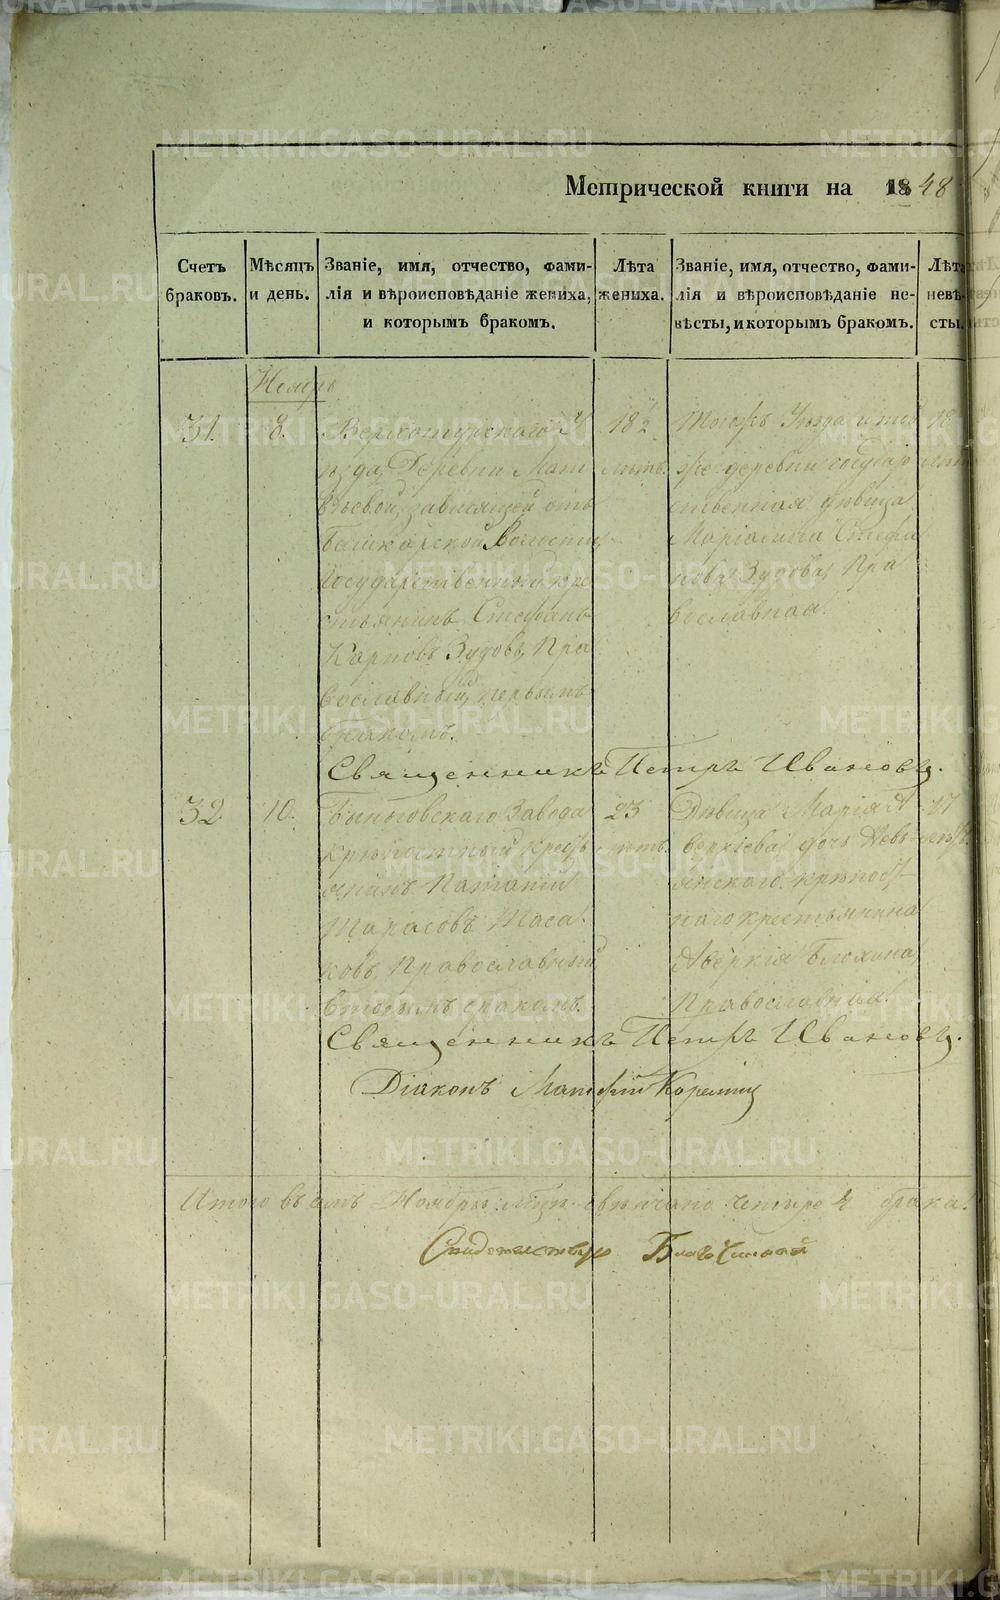 Метрической книги на 1848
Счетъ браковъ.
Мѣсяцъ и день.
Званіе, имя, отчество, фами-
лія и вѣроисповѣданіе жениха,
и которымъ бракомъ.
Лѣта
жениха.
Званіе, имя, отчество, фами-
лія и вѣроисповѣданіе не-
вѣсты, и которымъ бракомъ.
Лѣта
невѣ-
сты.
31.
8.
Верхотурскаго У
ѣзда, Деревни Мат
вѣевой, зависящей отъ
Башкарской Волости,
Государственный кре
стьянинъ Стефанъ
Карповъ Зудовъ, Пра
вославный, первымъ
бракомъ.
18½
лѣтъ.
Тогожъ Уѣзда и той
же деревни государ
ственная дѣвица
Стефа
нова Зудова, Пра
вославная.
18
Священникъ Петръ Ивановъ.
32
10.
Быньговскаго Завода
крѣпостный кресть
янинъ
Тарасовъ
ковъ, Православный
вторымъ бракомъ.
23
лѣтъ.
Дѣвица Марія А
веркіева дочь Невь-
янскаго крѣпост
наго крестьянина
Аверкія Блохина,
Православная.
17
лѣтъ.
Священникъ Петръ Ивановъ.
Діаконъ Матфій
Итого въ Ноябрѣ свѣнчано четыре 4 брака.
Свидетельствую
METRIKI.GASO-URAL.RU